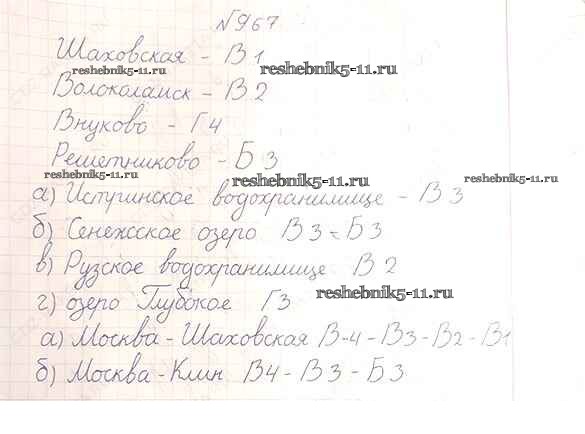 №967
Шаховская - В 1
reshebnik5-11.ru reshebnik5-11.ru
Волоколамск - В 2
Внуково - Г 4
Решетниково - Б 3
reshebnik5-11.ru reshebnik5-11.ru reshebnik5-11.ru
а) Истринское водохранилище - В 3
б) Сенежсское озеро В 3 - Б 3
в) Рузское водохранилище В 2
г) озеро Глубокое Г 3
reshebnik5-11.ru
а) Москва - Шаховская В-4 - В 3 - В 2 - В 1
б) Москва - Клин В4 - В 3 - Б 3